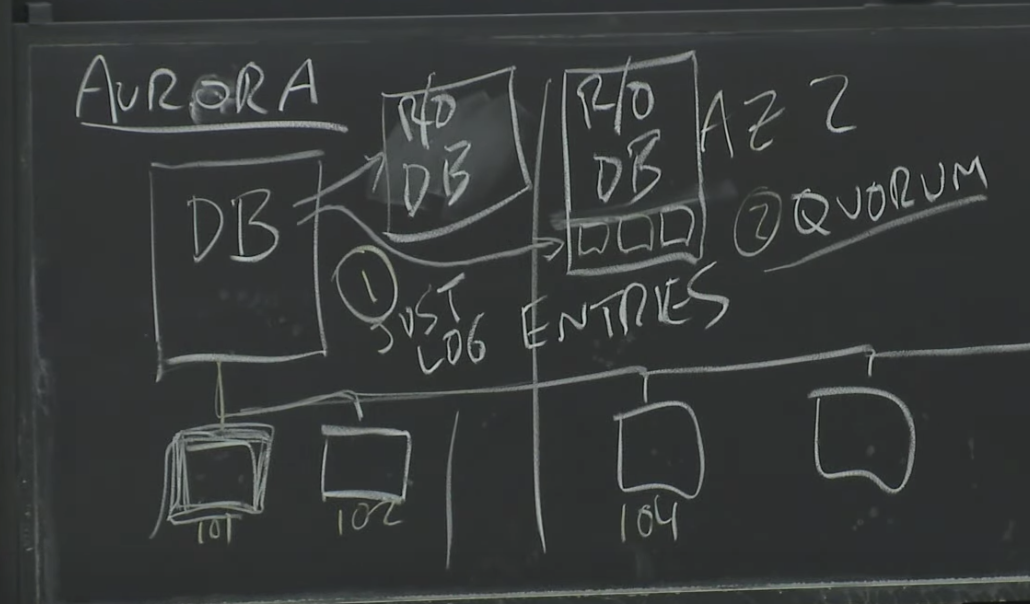 AURORA
DB
R/O
DB
R/O
DB
AZ 2
② QUORUM
① JUST
LOG ENTRIES
101
102
104